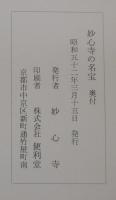 妙心寺の名宝　奥付
昭和五十二年三月十五日　発行
発行者　妙心寺
印刷者　株式会社 便利堂
京都市中京区新町通竹屋町南